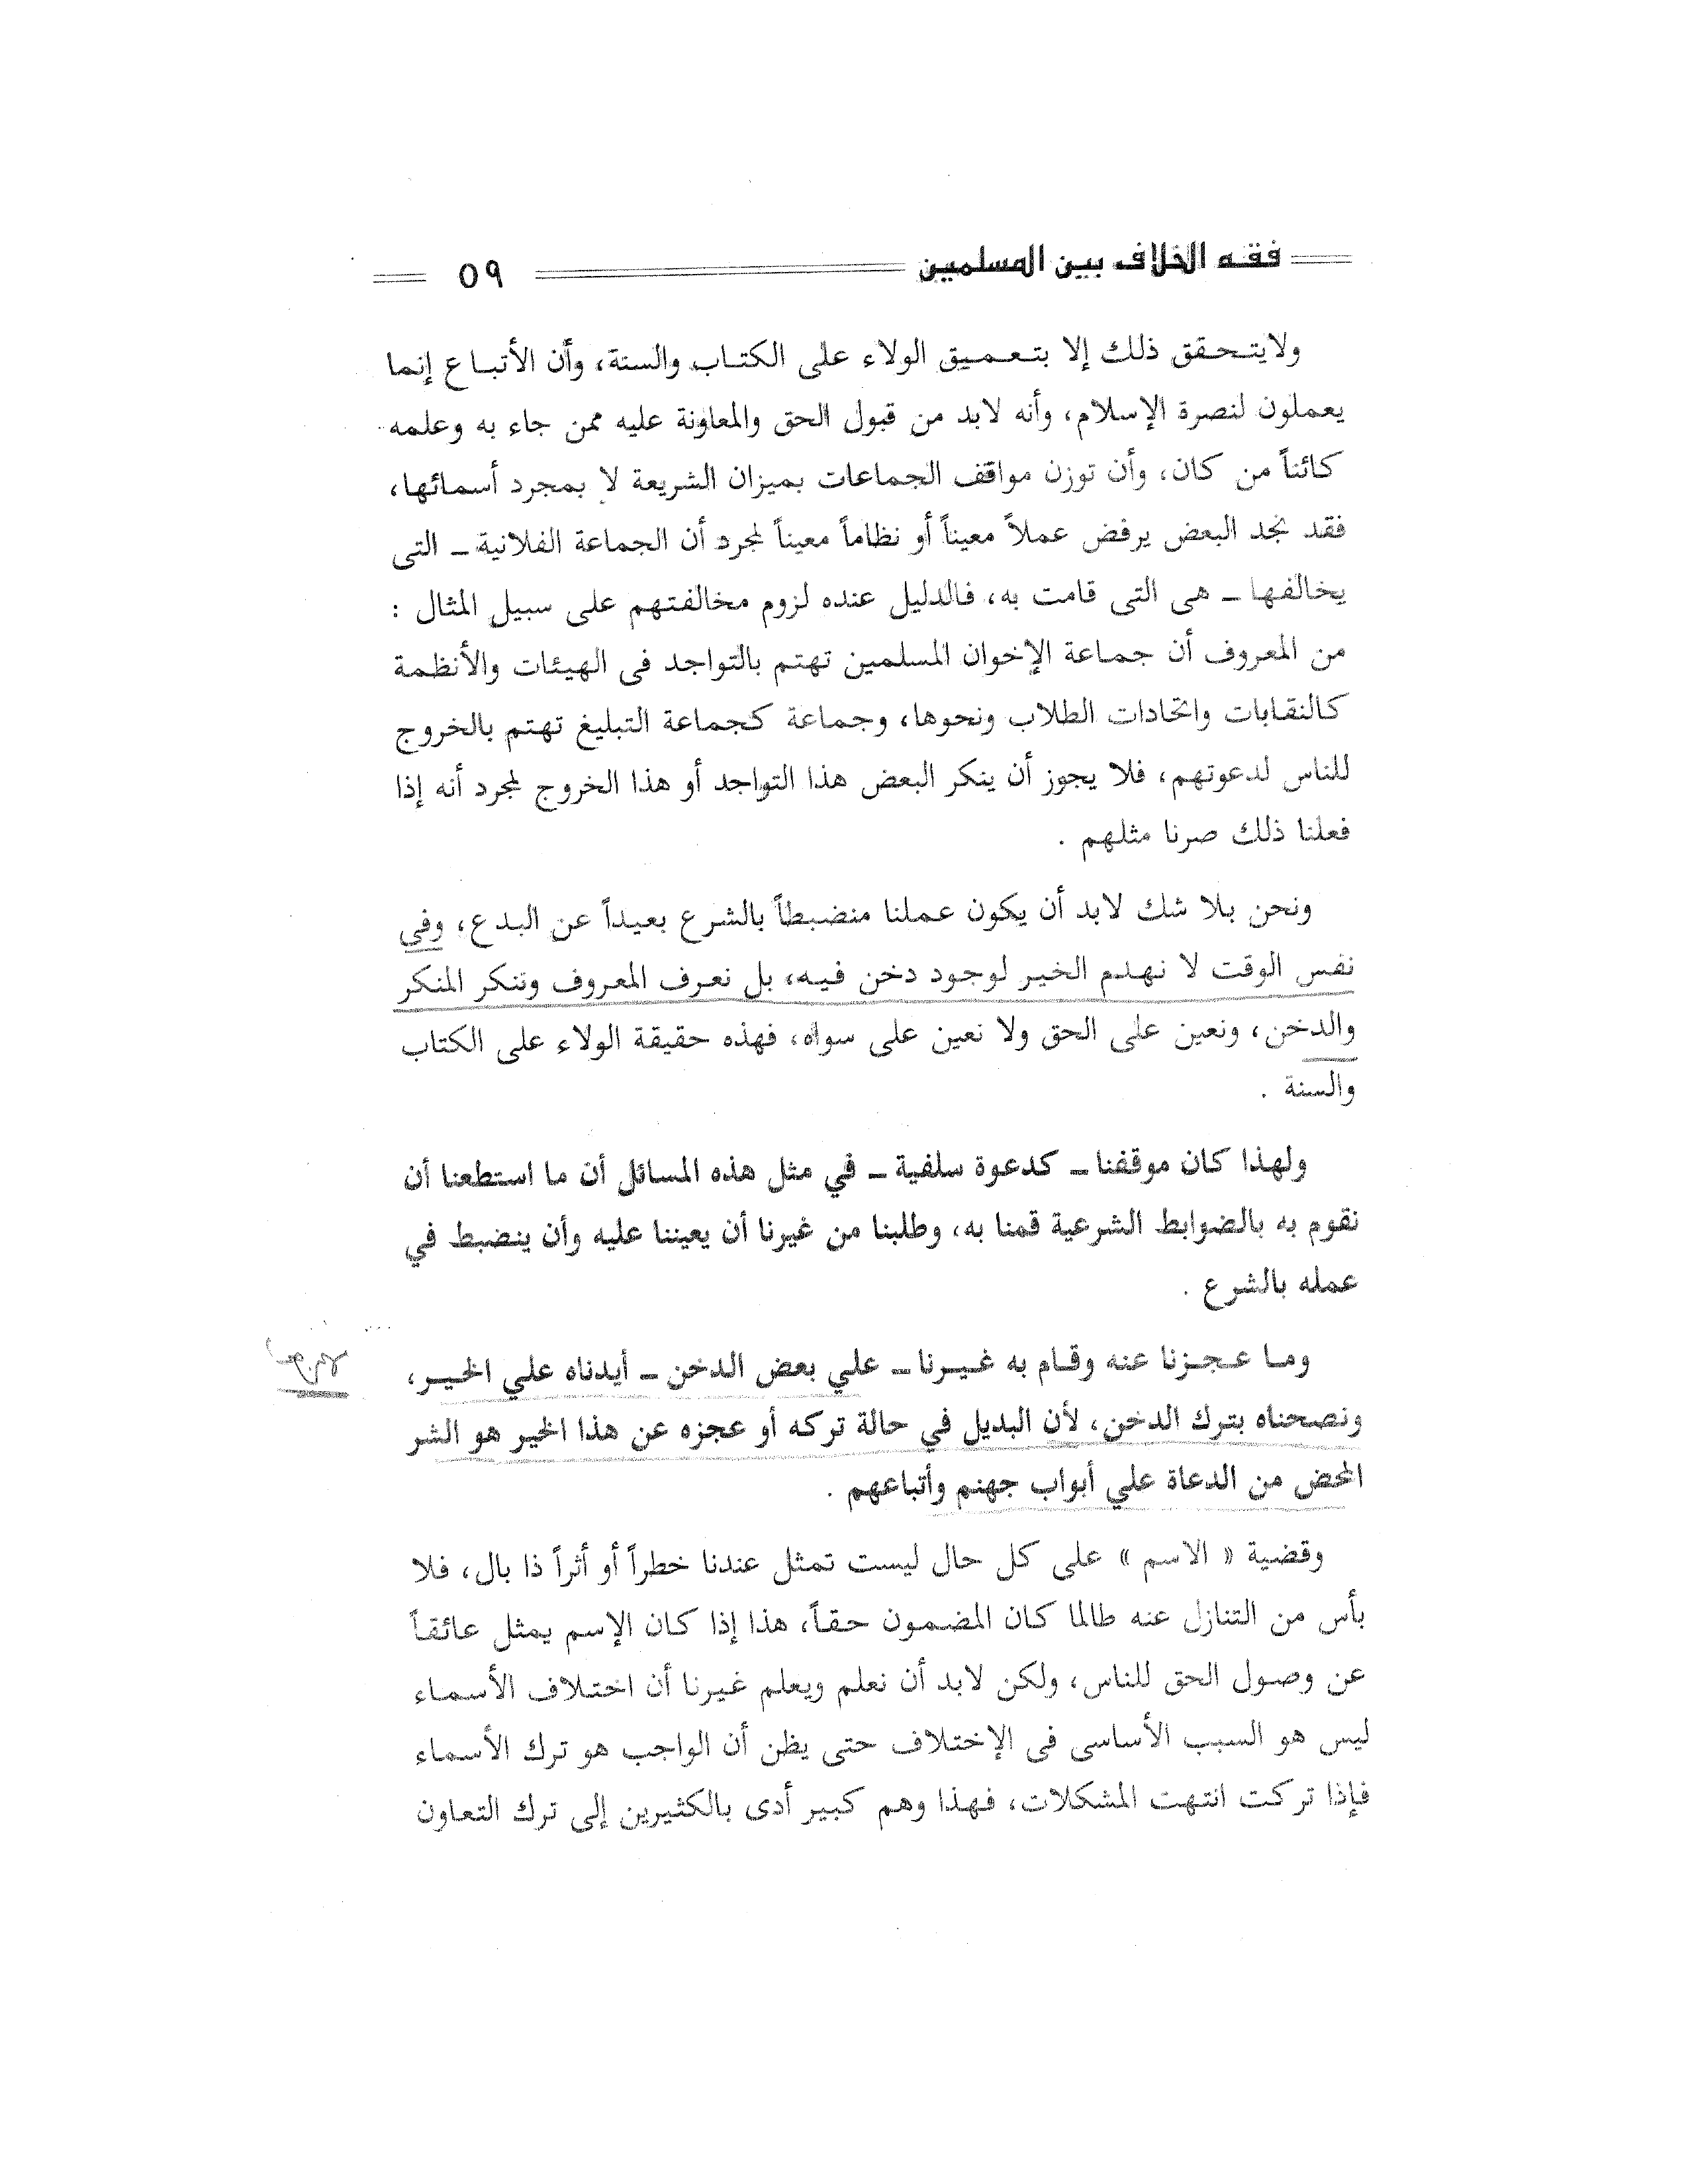 فقه الخلاف بين المسلمين ٥٩
ولايتحقق ذلك إلا بتعميق الولاء على الكتاب والسنة، وأن الأتباع إنما
يعملون لنصرة الإسلام، وأنه لابد من قبول الحق والمعاونة عليه ممن جاء به وعلمه
كائناً من كان، وأن توزن مواقف الجماعات بميزان الشريعة لا بمجرد أسمائها،
فقد نجد البعض يرفض عملاً معيناً أو نظاماً معيناً لمجرد أن الجماعة الفلانية ـ التى
يخالفها ـ هى التى قامت به، فالدليل عنده لزوم مخالفتهم على سبيل المثال :
من المعروف أن جماعة الإخوان المسلمين تهتم بالتواجد فى الهيئات والأنظمة
كالنقابات واتحادات الطلاب ونحوها، وجماعة كجماعة التبليغ تهتم بالخروج
للناس لدعوتهم، فلا يجوز أن ينكر البعض هذا التواجد أو هذا الخروج لمجرد أنه إذا
فعلنا ذلك صرنا مثلهم .
ونحن بلا شك لابد أن يكون عملنا منضبطاً بالشرع بعيداً عن البدع، وفى
نفس الوقت لا نهدم الخير لوجود دخن فيه، بل نعرف المعروف وننكر المنكر
والدخن، ونعين على الحق ولا نعين على سواه، فهذه حقيقة الولاء على الكتاب
والسنة .
ولهذا كان موقفنا ـ كدعوة سلفية ـ في مثل هذه المسائل أن ما استطعنا أن
نقوم به بالضوابط الشرعية قمنا به، وطلبنا من غيرنا أن يعيننا عليه وأن ينضبط في
عمله بالشرع .
وما عجزنا عنه وقام به غيرنا ـ علي بعض الدخن ـ أيدناه علي الخير،
ونصحناه بترك الدخن، لأن البديل في حالة تركه أو عجزه عن هذا الخير هو الشر
المحض من الدعاة علي أبواب جهنم وأتباعهم .
وقضية « الاسم » على كل حال ليست تمثل عندنا خطراً أو أثراً ذا بال، فلا
بأس من التنازل عنه طالما كان المضمون حقاً، هذا إذا كان الإسم يمثل عائقاً
عن وصول الحق للناس، ولكن لابد أن نعلم ويعلم غيرنا أن اختلاف الأسماء
ليس هو السبب الأساسى فى الإختلاف حتى يظن أن الواجب هو ترك الأسماء
فإذا تركت انتهت المشكلات، فهذا وهم كبير أدى بالكثيرين إلى ترك التعاون